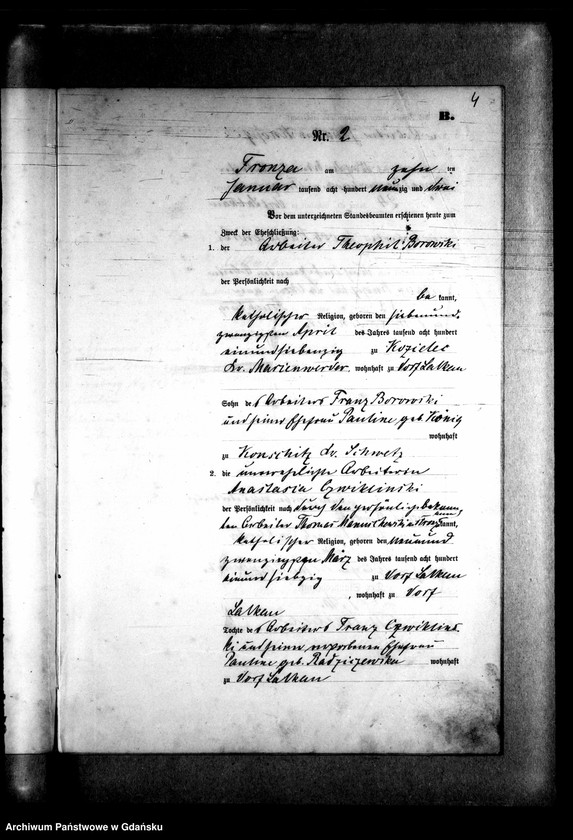 4
B.
Nr. 2
Fronza am zehn ten
Januar tausend acht hundert neunzig und zwei
Vor dem unterzeichneten Standesbeamten erschienen heute zum
Zweck der Eheschließung:
1. der Arbeiter Theophil Borowski
der Persönlichkeit nach
be kannt,
katholischer Religion, geboren den siebenund-
zwanzigsten April des Jahres tausend acht hundert
einundsiebenzig zu Kozielec
Kr. Marienwerder, wohnhaft zu Dorf Lalkau
Sohn des Arbeiters Franz Borowski
und seiner Ehefrau Pauline geb. König
wohnhaft
zu Konschitz Kr. Schwetz
2. die unverehelichte Arbeiterin
Anastasia Czwiklinski
der Persönlichkeit nach durch den persönlich bekann-
ten Arbeiter Thomas kannt,
katholischer Religion, geboren den neunund
zwanzigsten März des Jahres tausend acht hundert
einundsiebzig zu Dorf Lalkau
, wohnhaft zu Dorf
Lalkau
Tochter des Arbeiters Franz Czwiklins
ki und seiner verstorbenen Ehefrau
Pauline geb. Radziszewska wohnhaft
zu Dorf Lalkau
Archiwum Państwowe w Gdańsku